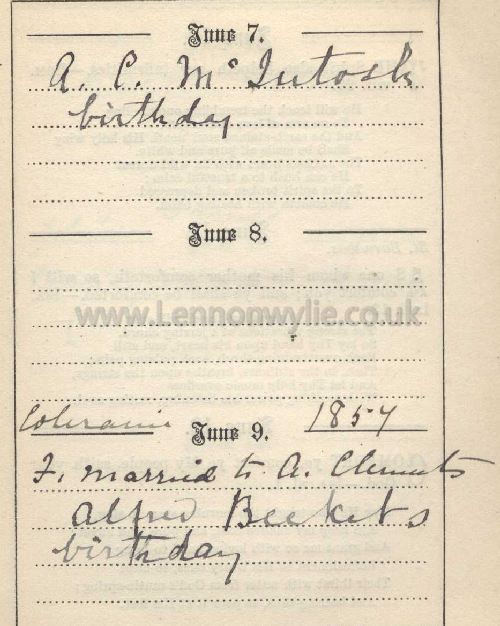 June 7.
A. C. McIntosh
birthday
June 8.
www.Lennonwylie.co.uk
Coleraine 1857
June 9.
F. married to A. Clements
Alfred Beckets
birthday